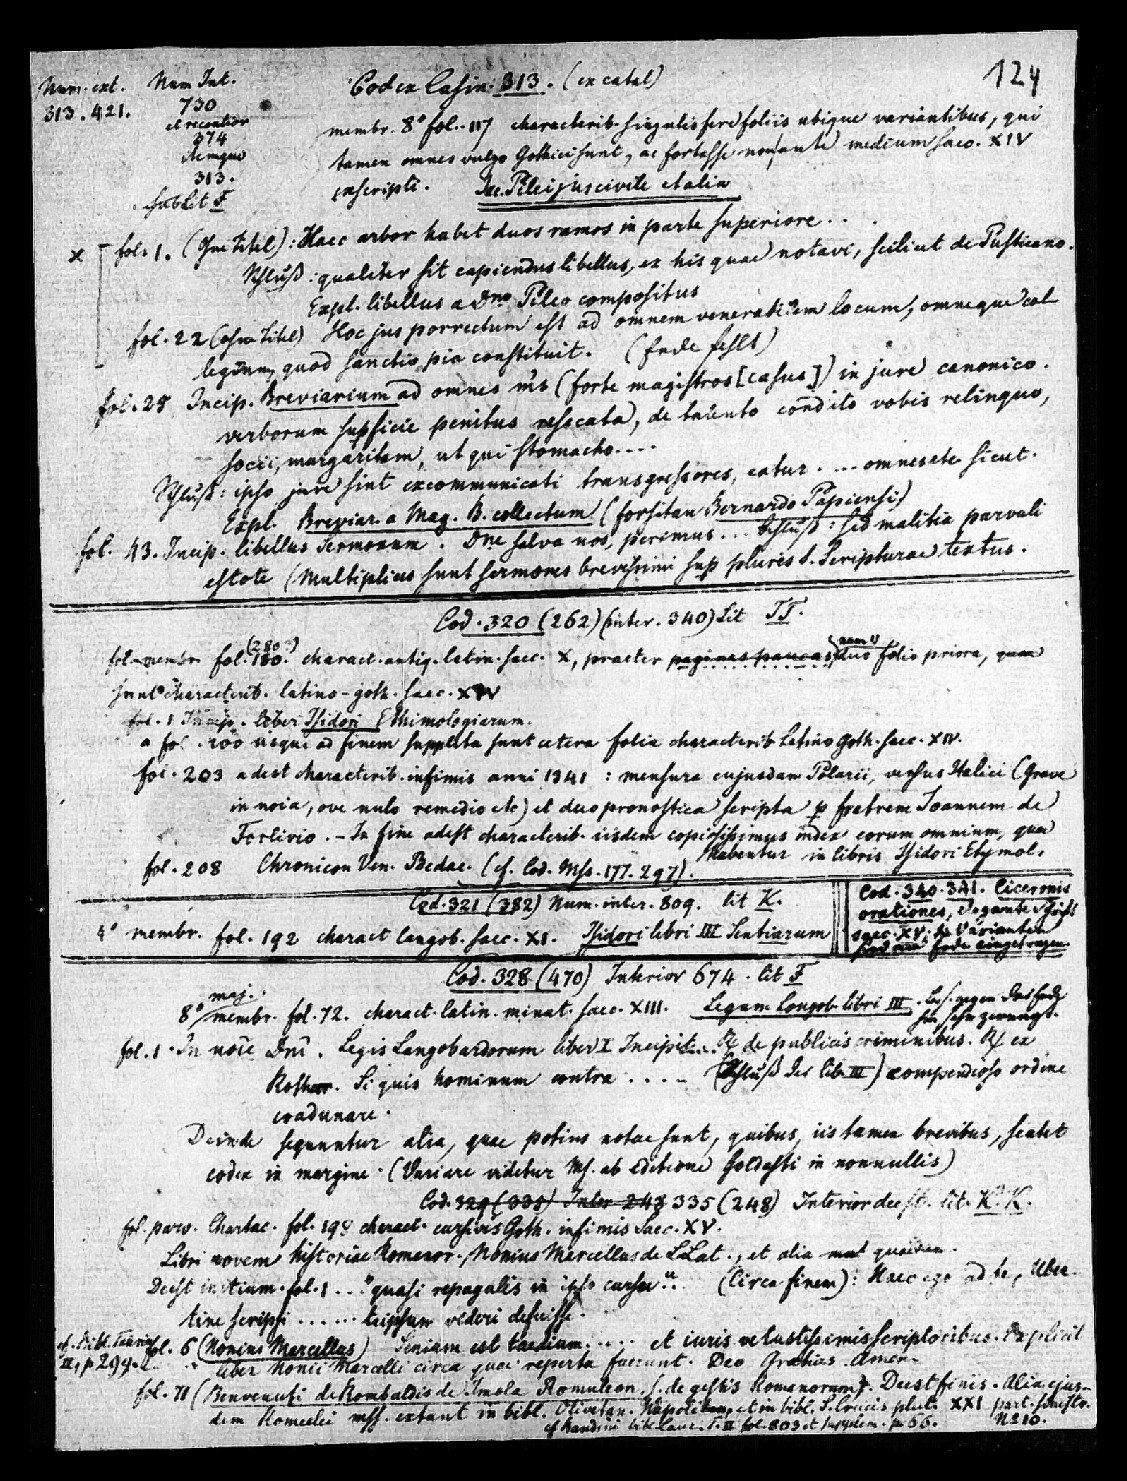 124
Num. ext. Num Int. Codex Casin. 313. (ex catal)
313. 421. 730
et recentior
374
itemque
313.
sub lit F
membr. 8° fol. 117 characterib. singulis fere foliis utique variantibus, qui
tamen omnes vulgo Gothici sunt, ac fortasse non ante medium saec. XIV
exscripti. Pilei jus civile Italia
x fol. 1. (Ohne Titel): Haec arbor habet duos ramos in parte superiore..
Schluß: qualiter sit capiendus libellus, ex his quae notavi, scilicet de
Expl. libellus a dno Pileo compositus
fol. 22 (ohne Titel) Hoc jus porrectum est ad omnem locum, omneque
legum, quod sanctio pia constituit. (Ende fehlt)
fol. 25 Incip. Breviarium ad omnes (forte magistros [casus]) in jure canonico.
verborum supficie penitus resecata, de condito vobis relinquo,
socii, margaritam, ut qui stomacho....
Schluß: ipso jure sint excommunicati transgressores, .... omnes etc sicut.
Expl. Breviar. a Mag. B. collectum (forsitan Bernardo Papiensi)
fol. 43. Incip. libellus Sermonum. Dne salva nos, perimus... Schluß: sed malitia parvuli
estote (Multiplices sunt sermones brevissimi sup plures S. Scripturae textus.
Cod. 320 (262) (inter. 340) Lit TT.
fol. membr. fol. 180. (280?) charact. antiq. latin. saec. X, praeter paginas paucas, (nam) duo folia priora, quae
sunt characterib. latino-goth. saec. XIV
fol. 1 Incip. liber Isidori Ethimologiarum.
a fol. 200 usque ad finem suppleta sunt cetera folia characterib Latino Goth. saec. XIV.
fol. 203 adest characterib. infimis anni 1341: mensura cujusdam Polarii, versus Italici (Grave
in noia, ove nulo remedio etc) et duo pronostica scripta p fratrem Joannem de
Forlivio. - In fine adest characterib. iisdem copiosissimus index eorum omnium, quae
habentur in libris Isidori Etymol.
fol. 208 Chronicon Ven. Bedae. (cf. Cod. Mss. 177. 297).
Cod. 321 (382) Num. inter. 809. lit K.
4° membr. fol. 192 charact Langob. saec. XI. Isidori libri III Sentiarum
Cod. 340. 341. Ciceronis
orationes, elegante
saec. XV. Varianten
Ende eingetragen.
Cod. 328 (470) Interior 674. lit F
8° maj. membr. fol. 72. charact. latin. minut. saec. XIII. Legum Longob. libri III.
fol. 1. In noie Dni. Legis Langobardorum liber I Incipit.. R/ de publicis criminibus. R/ ex
Rothar. Si quis hominum contra .... (Schluß des lib. III) compendioso ordine
coadunare.
Deinde sequuntur alia, quae potius notae sunt, quibus, iis tamen brevibus, scatet
codex in margine. (Variare videtur Ms. ab editione Goldasti in nonnullis)
Cod. 329 (338) Inter 243 335 (248) Interior deest. lit. K. K.
fol. parv. Chartac. fol. 198 charact. cursivis Goth. infimis Saec. XV.
Libri novem historiae Romanor., Nonius Mercellus de L. Lat., et alia quaedam.
Deest initium. fol. 1 ... "quasi repagulis in ipso cursu".. (Circa finem): Haec ego ad te, Uber-
tine scripsi ...... teipsum videri defuisse.
cf. Bibl. Taurin. II, p 299. fol. 6 (Nonius Marcellus) Senium est taedium..... et iuris vetustissimis scriptoribus. Explicit
liber Nonii Marcelli circa quae reperta fuerunt. Deo Gratias. Amen.
fol. 71 (Benvenuti de Rombaldis de Imola Romuleon. s. de gestis Romanorum). Deest finis. Alia ejus-
dem Romulei mss. extant in bibl. Olivetan. Napoli et in bibl. S. Crucis plut. XXI part. sinistr.
cf Bandini bibl. Laur. T. II fol. 803 et Supplem. p 66. N 10.